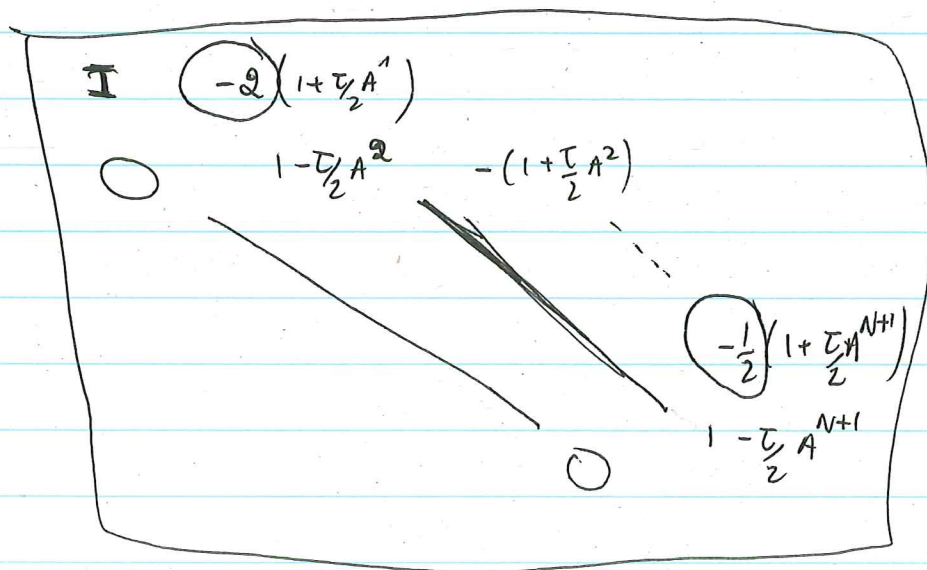 I -2 (1 + τ/2 A^1)
1 - τ/2 A^2 - (1 + τ/2 A^2)
-1/2 (1 + τ/2 A^{N+1})
1 - τ/2 A^{N+1}